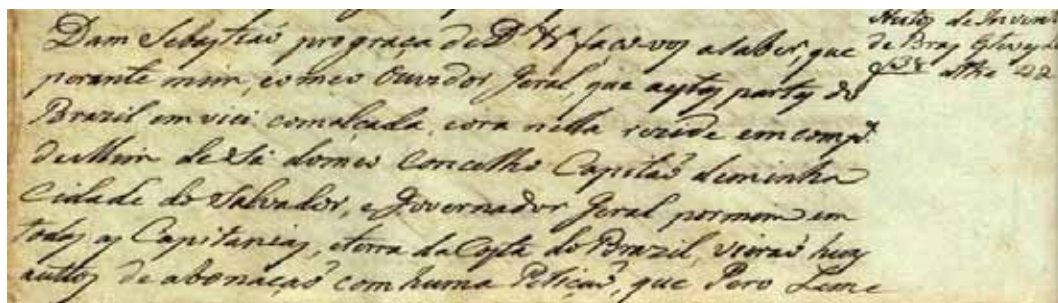 Dom Sebastiaõ por graça de Ds &ª faço-vos a saber, que
perante mim, e o meo Ouvidor Geral, que a estas partes do
Brazil emviei com alçada, e ora nella rezide em compª.
de Mem de Sá do meo Concelho Capitaõ de minha
Cidade do Salvador, e Governador Geral por mim em
todas as Capitanias, e terra da Costa do Brazil, vieraõ huns
auttos de abonaçaõ com huma Petiçaõ, que Pero Leme
Autos de Invent
de Bras Esteves